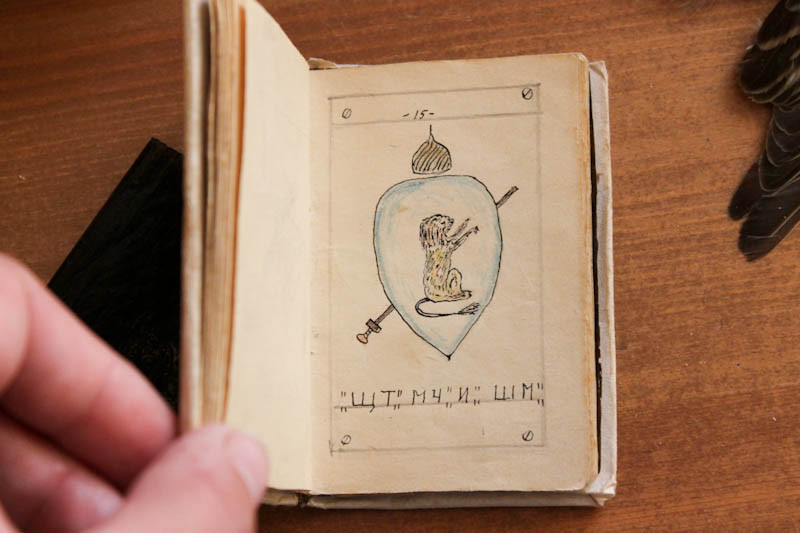 -15-
"ЩТ„ МЧ"И„ ШМ"